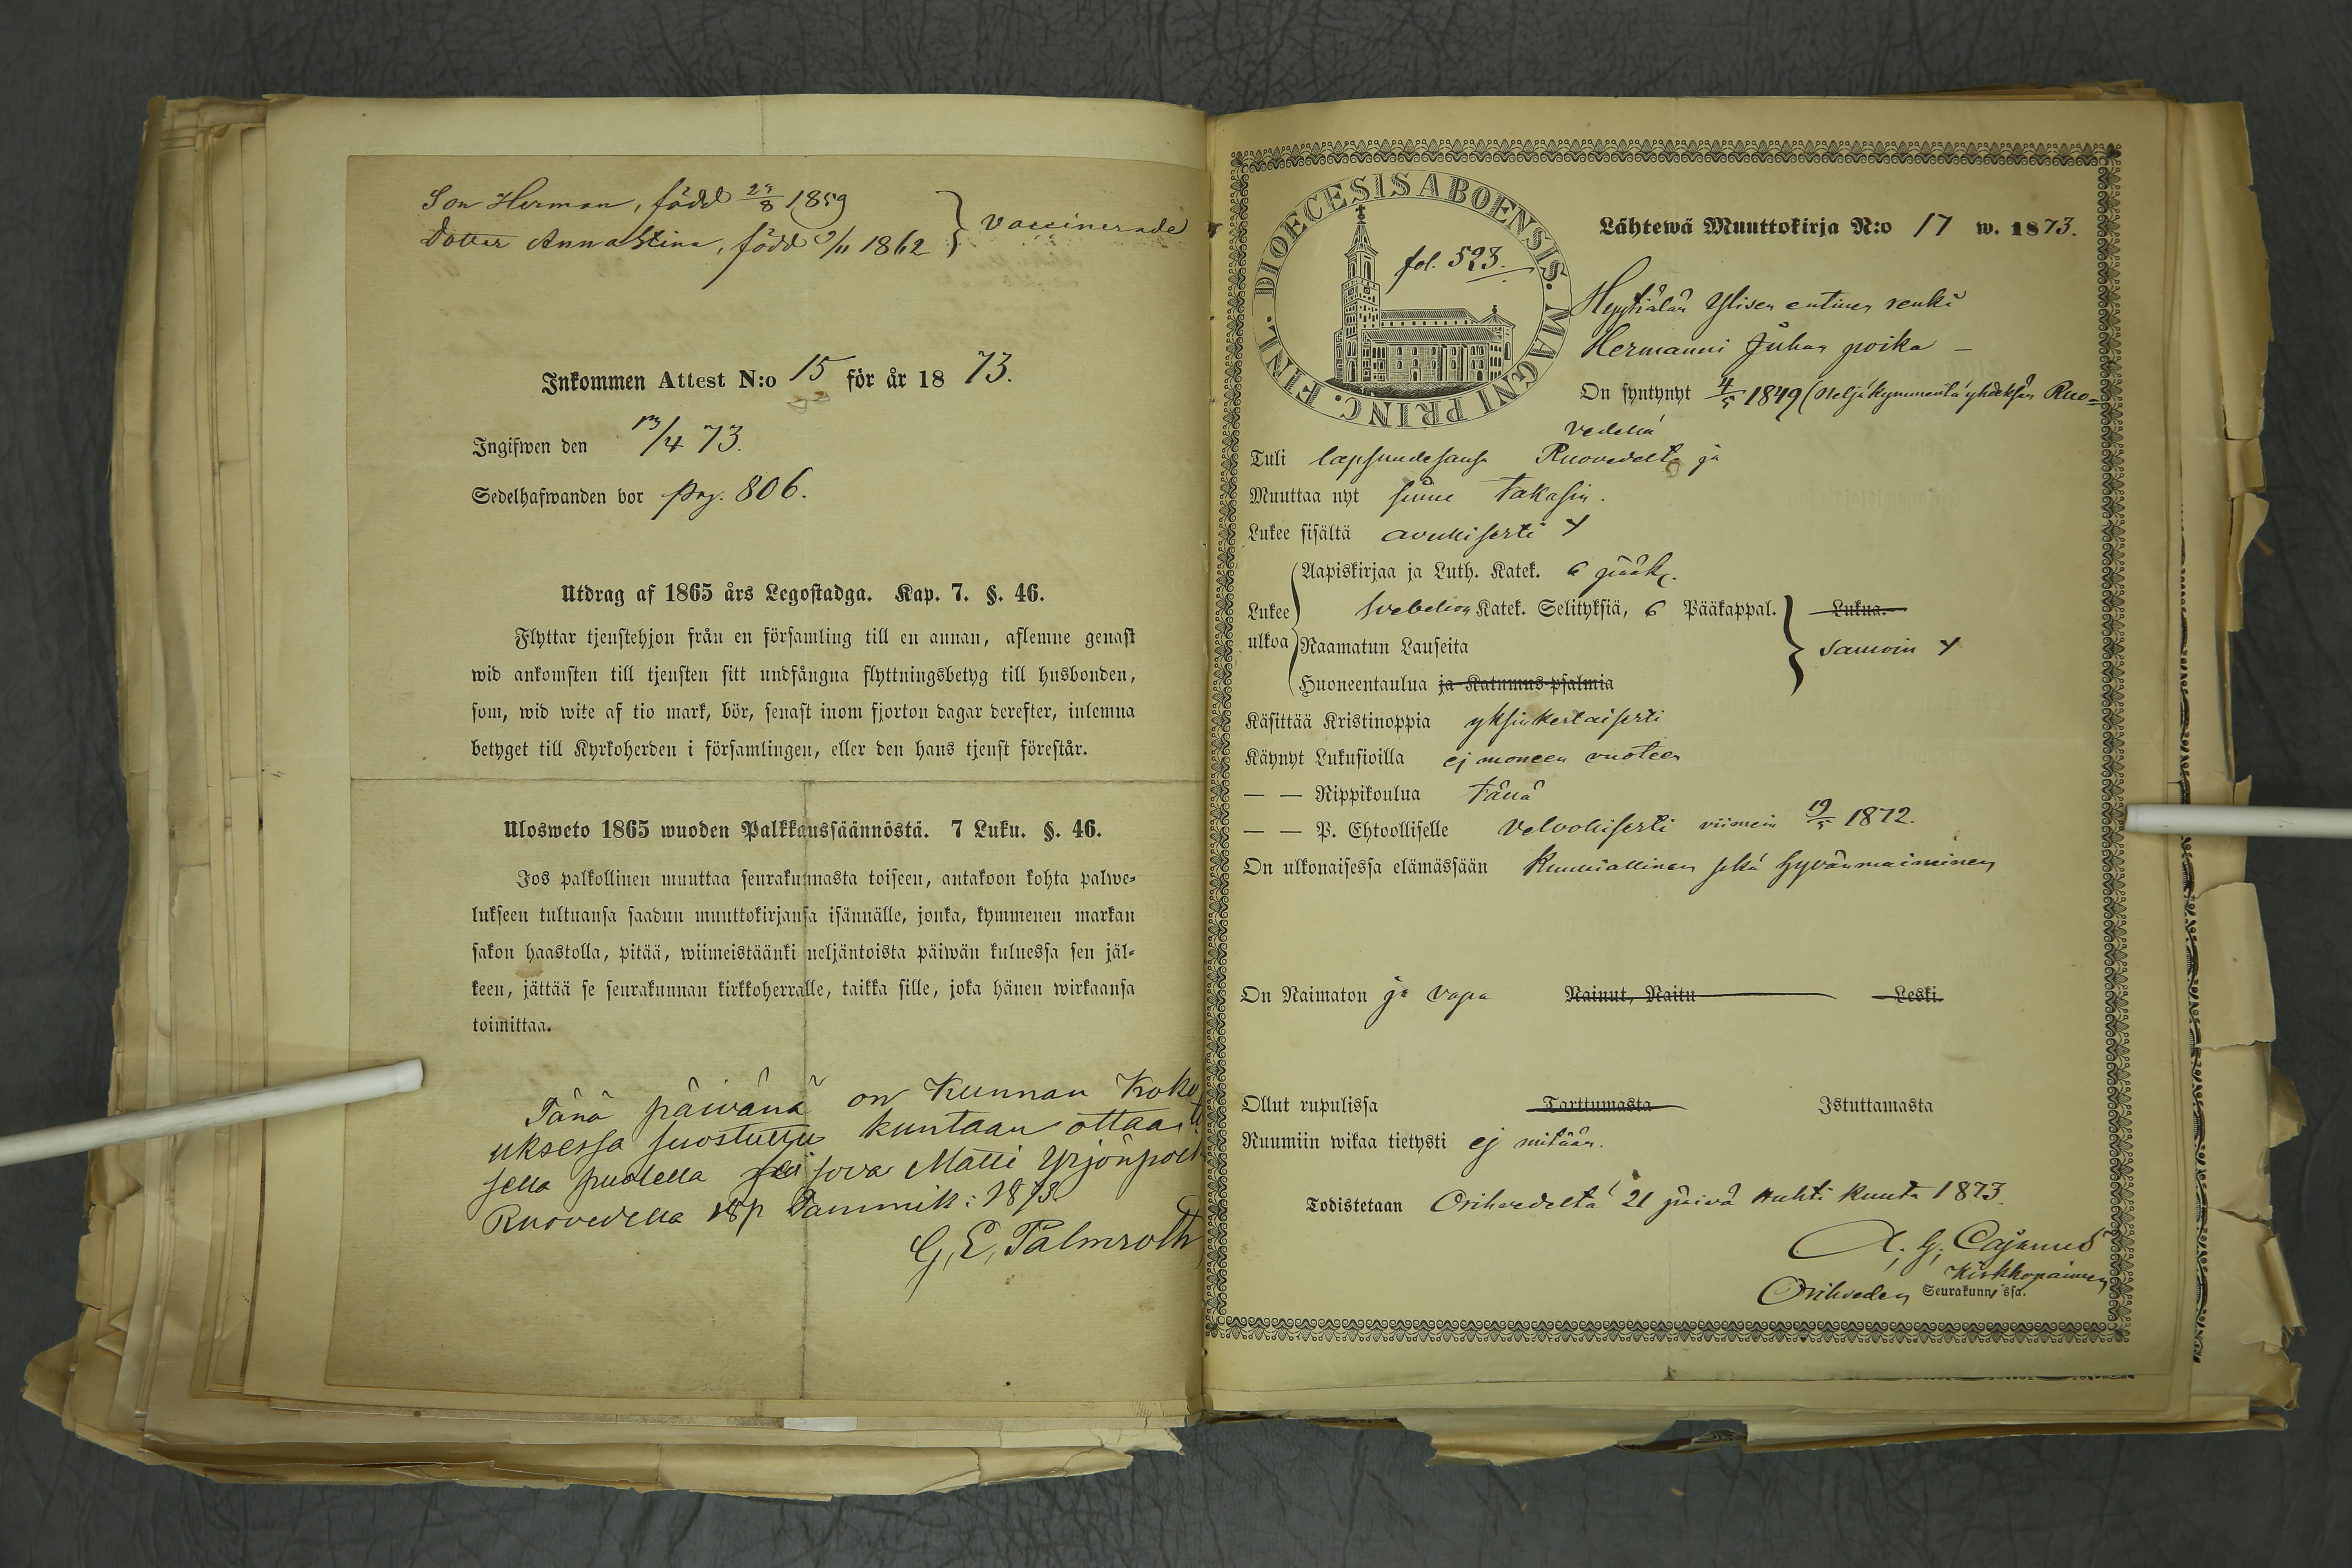 Son Herman, född 29/8 1859
Dotter Anna Stina, född 9/11 1862 } Vaccinerade
Inkommen Attest N:o 15 för år 1873.
Ingifwen den 13/4 73.
Sedelhafwanden bor pag. 806.
Utdrag af 1865 års Legostadga. Kap. 7. §. 46.
Flyttar tjenstehjon från en församling till en annan, aflemne genast
wid ankomsten till tjensten sitt undfångna flyttningsbetyg till husbonden,
som, wid wite af tio mark, bör, senast inom fjorton dagar derefter, inlemna
betyget till Kyrkoherden i församlingen, eller den hans tjenst förestår.
Ulosweto 1865 wuoden Palkkaussäännöstä. 7 Luku. §. 46.
Jos palkollinen muuttaa seurakunnasta toiseen, antakoon kohta palwe-
lukseen tultuansa saadun muuttokirjansa isännälle, jonka, kymmenen markan
sakon haastolla, pitää, wiimeistäänki neljäntoista päiwän kuluessa sen jäl-
keen, jättää se seurakunnan kirkkoherralle, taikka sille, joka hänen wirkaansa
toimittaa.
Tänä päivänä on Kunnan Koko
uksessa suostuttu kuntaan ottaa
sella puolella seisova Matti Yrjönpoik
Ruovedella 18p Tammik: 1873.
G, E, Palmroth
DIOECESIS ABOENSIS. MAGNI PRINC. FINL.
fol. 523.
Lähtewä Muuttokirja N:o 17 w. 1873.
Hyytiälän Ylisen entinen renki
Hermanni Juhan poika —
On syntynyt 4/5 1849 (Neljäkymmentäyhdeksän Ruo=
vedellä
Tuli lapsuudesansa Ruovedeltä ja
Muuttaa nyt sinne takasin.
Lukee sisältä avullisesti
Lukee ulkoa
Aapiskirjaa ja Luth. Katek. 6 pääk.
Svebelion Katek. Selityksiä, 6 Pääkappal. Lukua.
Raamatun Lauseita samoin
Huoneentaulua ja Katumus-psalmia
Käsittää Kristinoppia yksinkertaisesti
Käynyt Lukusioilla ej moneen vuoteen
— — Rippikoulua tänä
— — P. Ehtoolliselle Velvollisesti viimein 19/5 1872.
On ulkonaisessa elämässään Kunniallinen sekä hyvänmaineinen
On Naimaton ja vapa Nainut, Naitu Leski.
Ollut rupulissa Tarttumasta Istuttamasta
Ruumiin wikaa tietysti ej mitään.
Todistetaan Orihvedeltä 21 päivä Huhti kuuta 1873.
A. G. Cajanus
Kirkkopaimen
Orihveden Seurakunnassa.